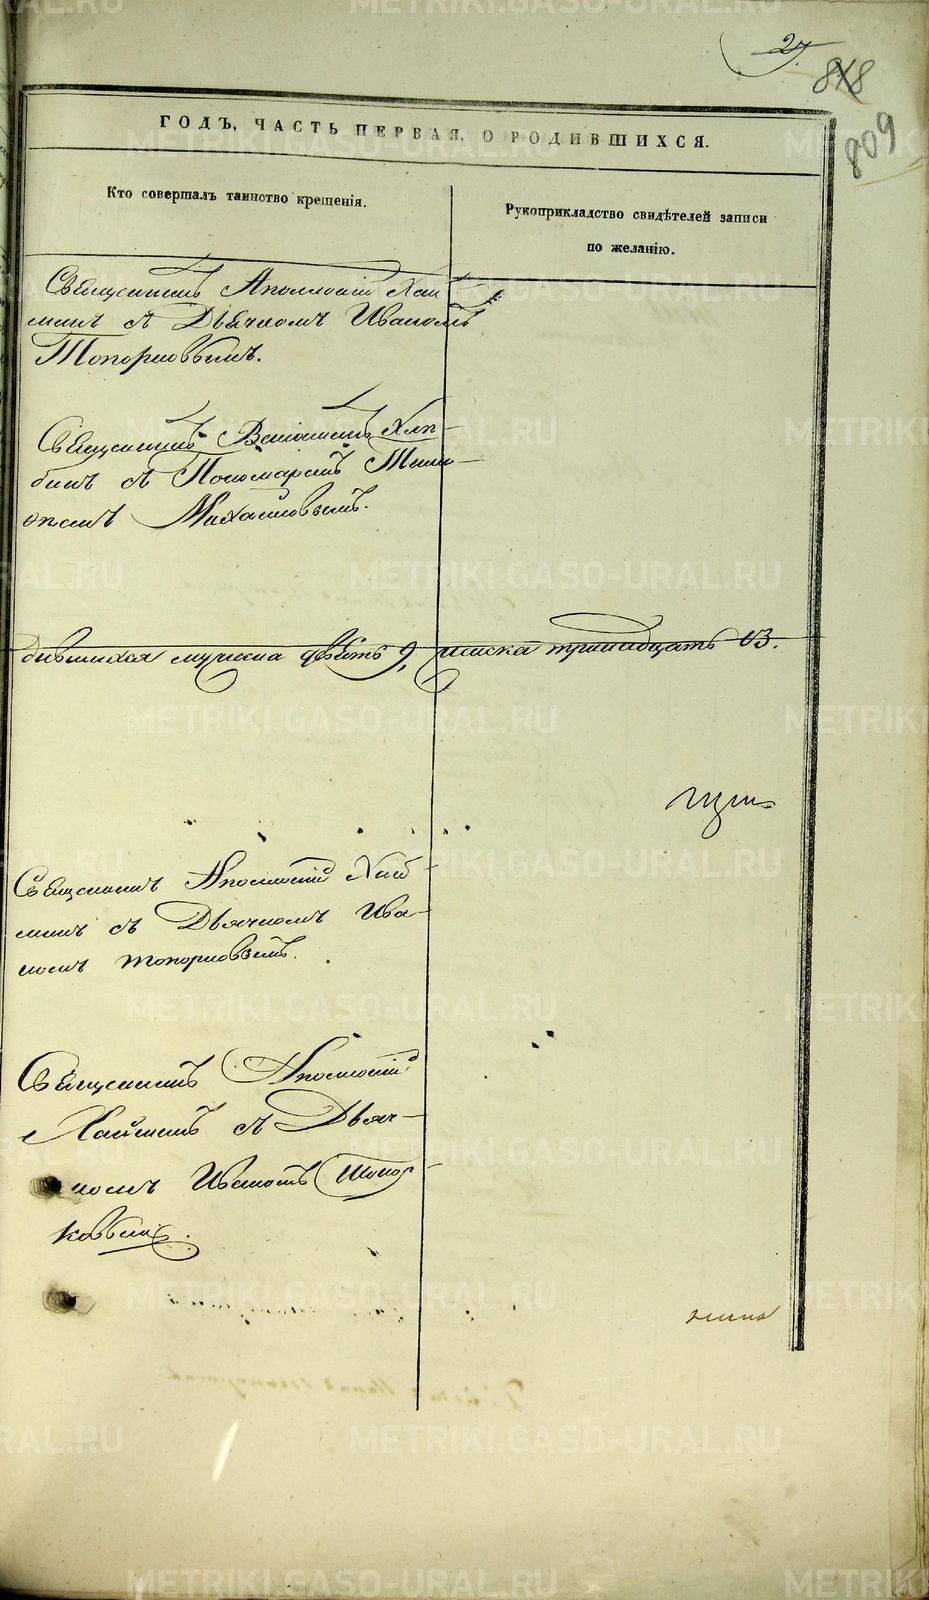 27.
818
809
ГОДЪ, ЧАСТЬ ПЕРВАЯ, О РОДИВШИХСЯ.
Кто совершалъ таинство крещенія.
Рукоприкладство свидѣтелей записи
по желанію.
Священникъ Аполлоній Хай
минъ съ Дьячкомъ Иваномъ
Топорковымъ.
Священникъ Веніаминъ Хлы-
бинъ съ Пономаремъ
Михайловымъ.
дившихся мужеска девять 9, женска тринадцать 13.
Священникъ Аполлоній Хай
минъ съ Дьячкомъ Ива-
номъ Топорковымъ.
Священникъ Аполлоній
Хайминъ съ Дьяч-
комъ Иваномъ Топор
ковымъ.
METRIKI.GASO-URAL.RU